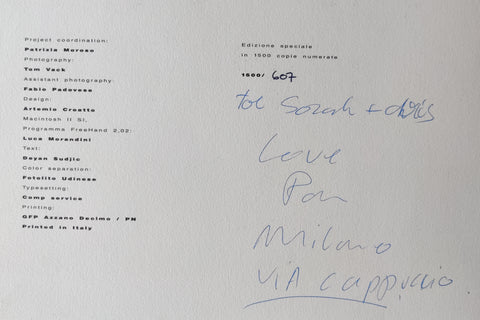 Project coordination:
Patrizia Moroso
Photography:
Tom Vack
Assistant photography:
Fabio Padovese
Design:
Artemio Croatto
Macintosh II SI,
Programma FreeHand 2.02:
Luca Morandini
Text:
Deyan Sudjic
Color separation:
Fotolito Udinese
Typesetting:
Comp service
Printing:
GFP Azzano Decimo / PN
Printed in Italy
Edizione speciale
in 1500 copie numerate
1500/ 607
Sarah + chris
Love
Milano
VIA Cappuccio